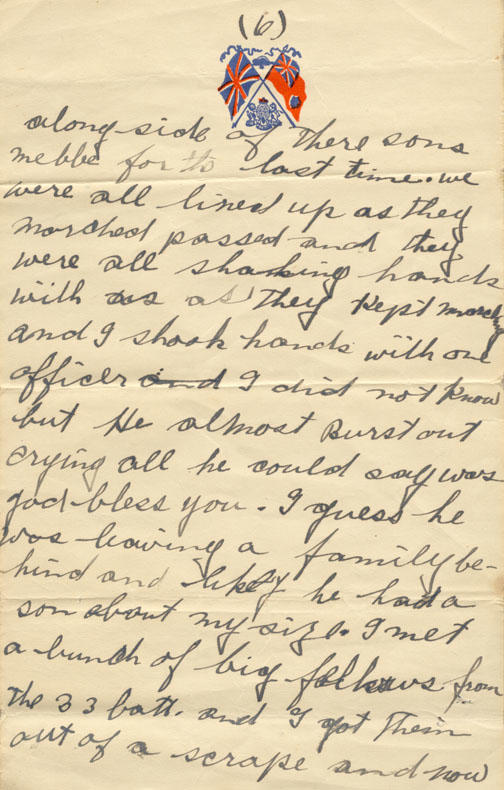 (6)
along side of there sons
mebbe for the last time. we
were all lined up as they
marched passed and they
were all shaking hands
with us as they kept march
and I shook hands with one
officer and I did not know
but He almost Burst out
crying all he could say was
god bless you. I guess he
was leaving a family be-
hind and likely he had a
son about my size. I met
a bunch of big fellows from
the 33 batt. and I got them
out of a scrape and now